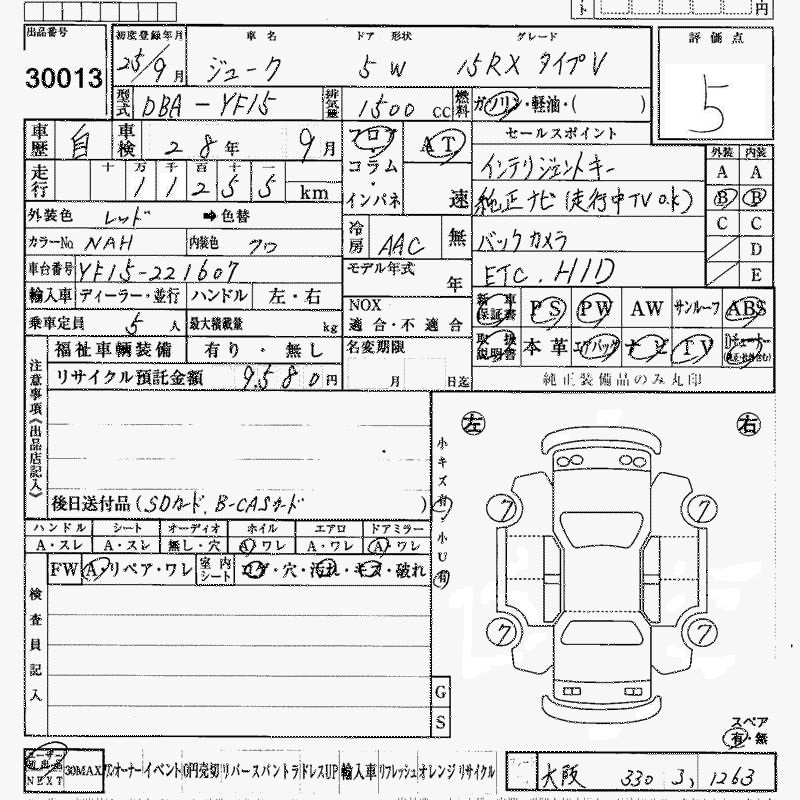 出品番号 初度登録年月 車名 ドア 形状 グレード 評価点
30013 25/9月 ジューク 5 W 15RX タイプV 5
型式 DBA-YF15 排気量 1500 CC 燃料 ガソリン・軽油・( )
車歴 自 車検 28年 9月 フロア・コラム・インパネ AT 速 セールスポイント
走行 十 万 千 百 十 一 外装 内装
11255 km インテリジェントキー A A
外装色 レッド ➡色替 純正ナビ(走行中TV o.k) B B
カラーNo. NAH 内装色 クロ 冷房 AAC 無 バックカメラ C C
車台番号 YF15-221607 モデル年式 年 ETC. HID D
E
輸入車 ディーラー・並行 ハンドル 左・右 NOX 適合・不適合 新車保証書 PS PW AW サンルーフ ABS
乗車定員 5人 最大積載量 kg 取扱説明書 本革 エアバッグ ナビ TV
福祉車輌装備 有り・無し 名変期限 月 日迄 純正装備品のみ丸印
リサイクル預託金額 9580円
注意事項《出品店記入》
後日送付品(SDカード、B-CASカード)
小キズ有・小U有
左 右
ハンドル シート オーディオ ホイル エアロ ドアミラー
A・スレ A・スレ 無し・穴 A・ワレ A・ワレ A・ワレ
FW A・リペア・ワレ 室内シート コゲ・穴・汚れ・キズ・破れ
7 7
7 7
検査員記入
G
S
スペア
有・無
ユーザー NEXT 30MAX ワンオーナー イベント 0円売切 リバース バントラ ドレスUP 輸入車 リフレッシュ オレンジ リサイクル
大阪 330 ス 1263